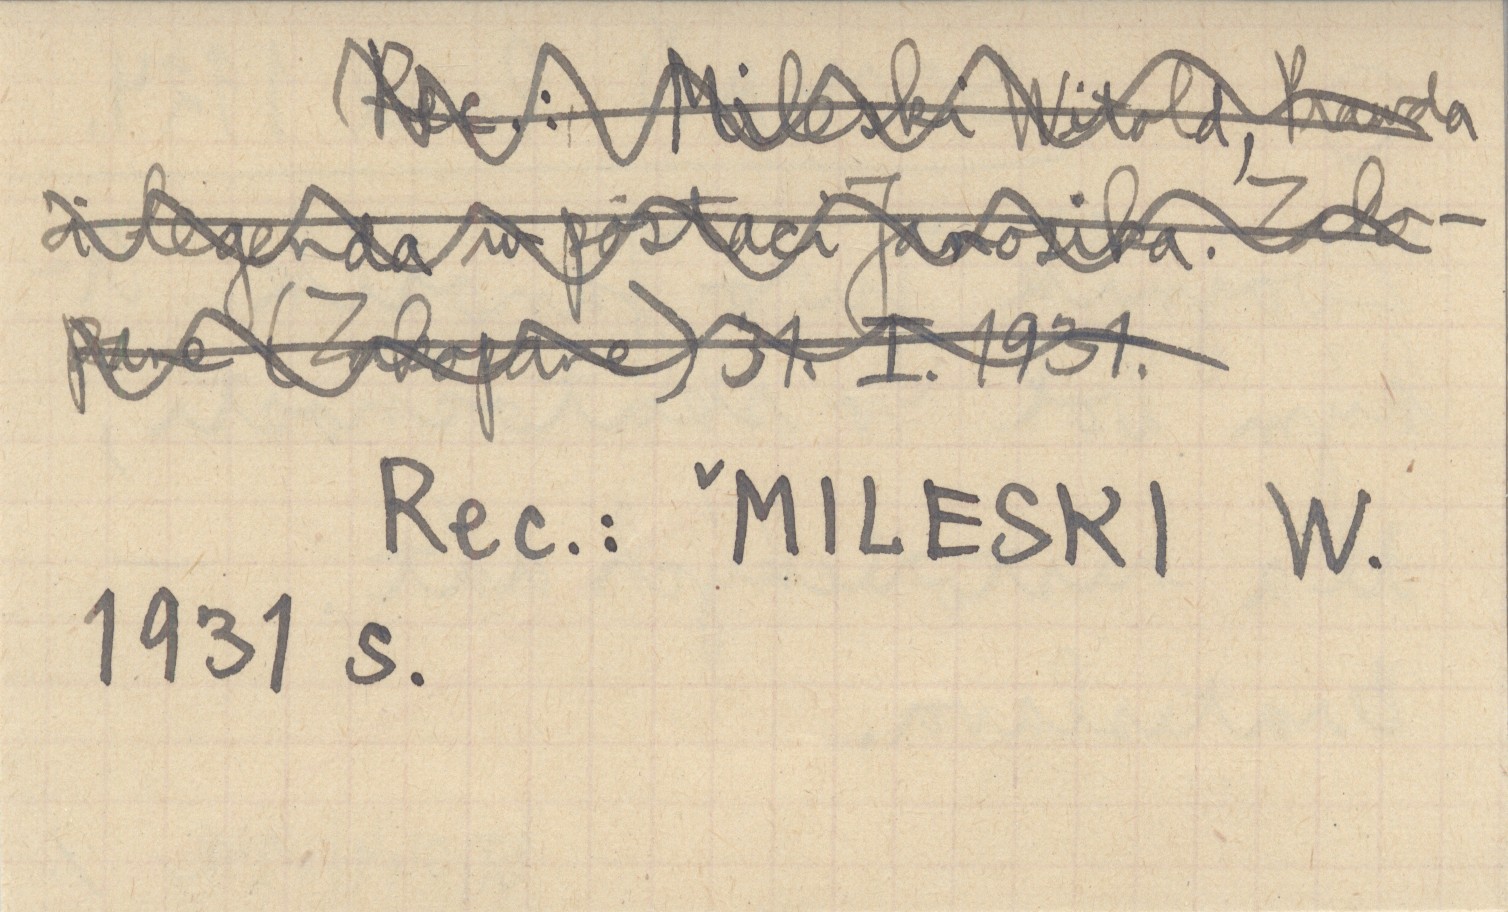 Rec.: Mileski Witold, Prawda
i legenda w postaci Janosika. Zako-
pane (Zakopane) 31. I. 1931.
Rec.: ˇMILESKI W.
1931 s.